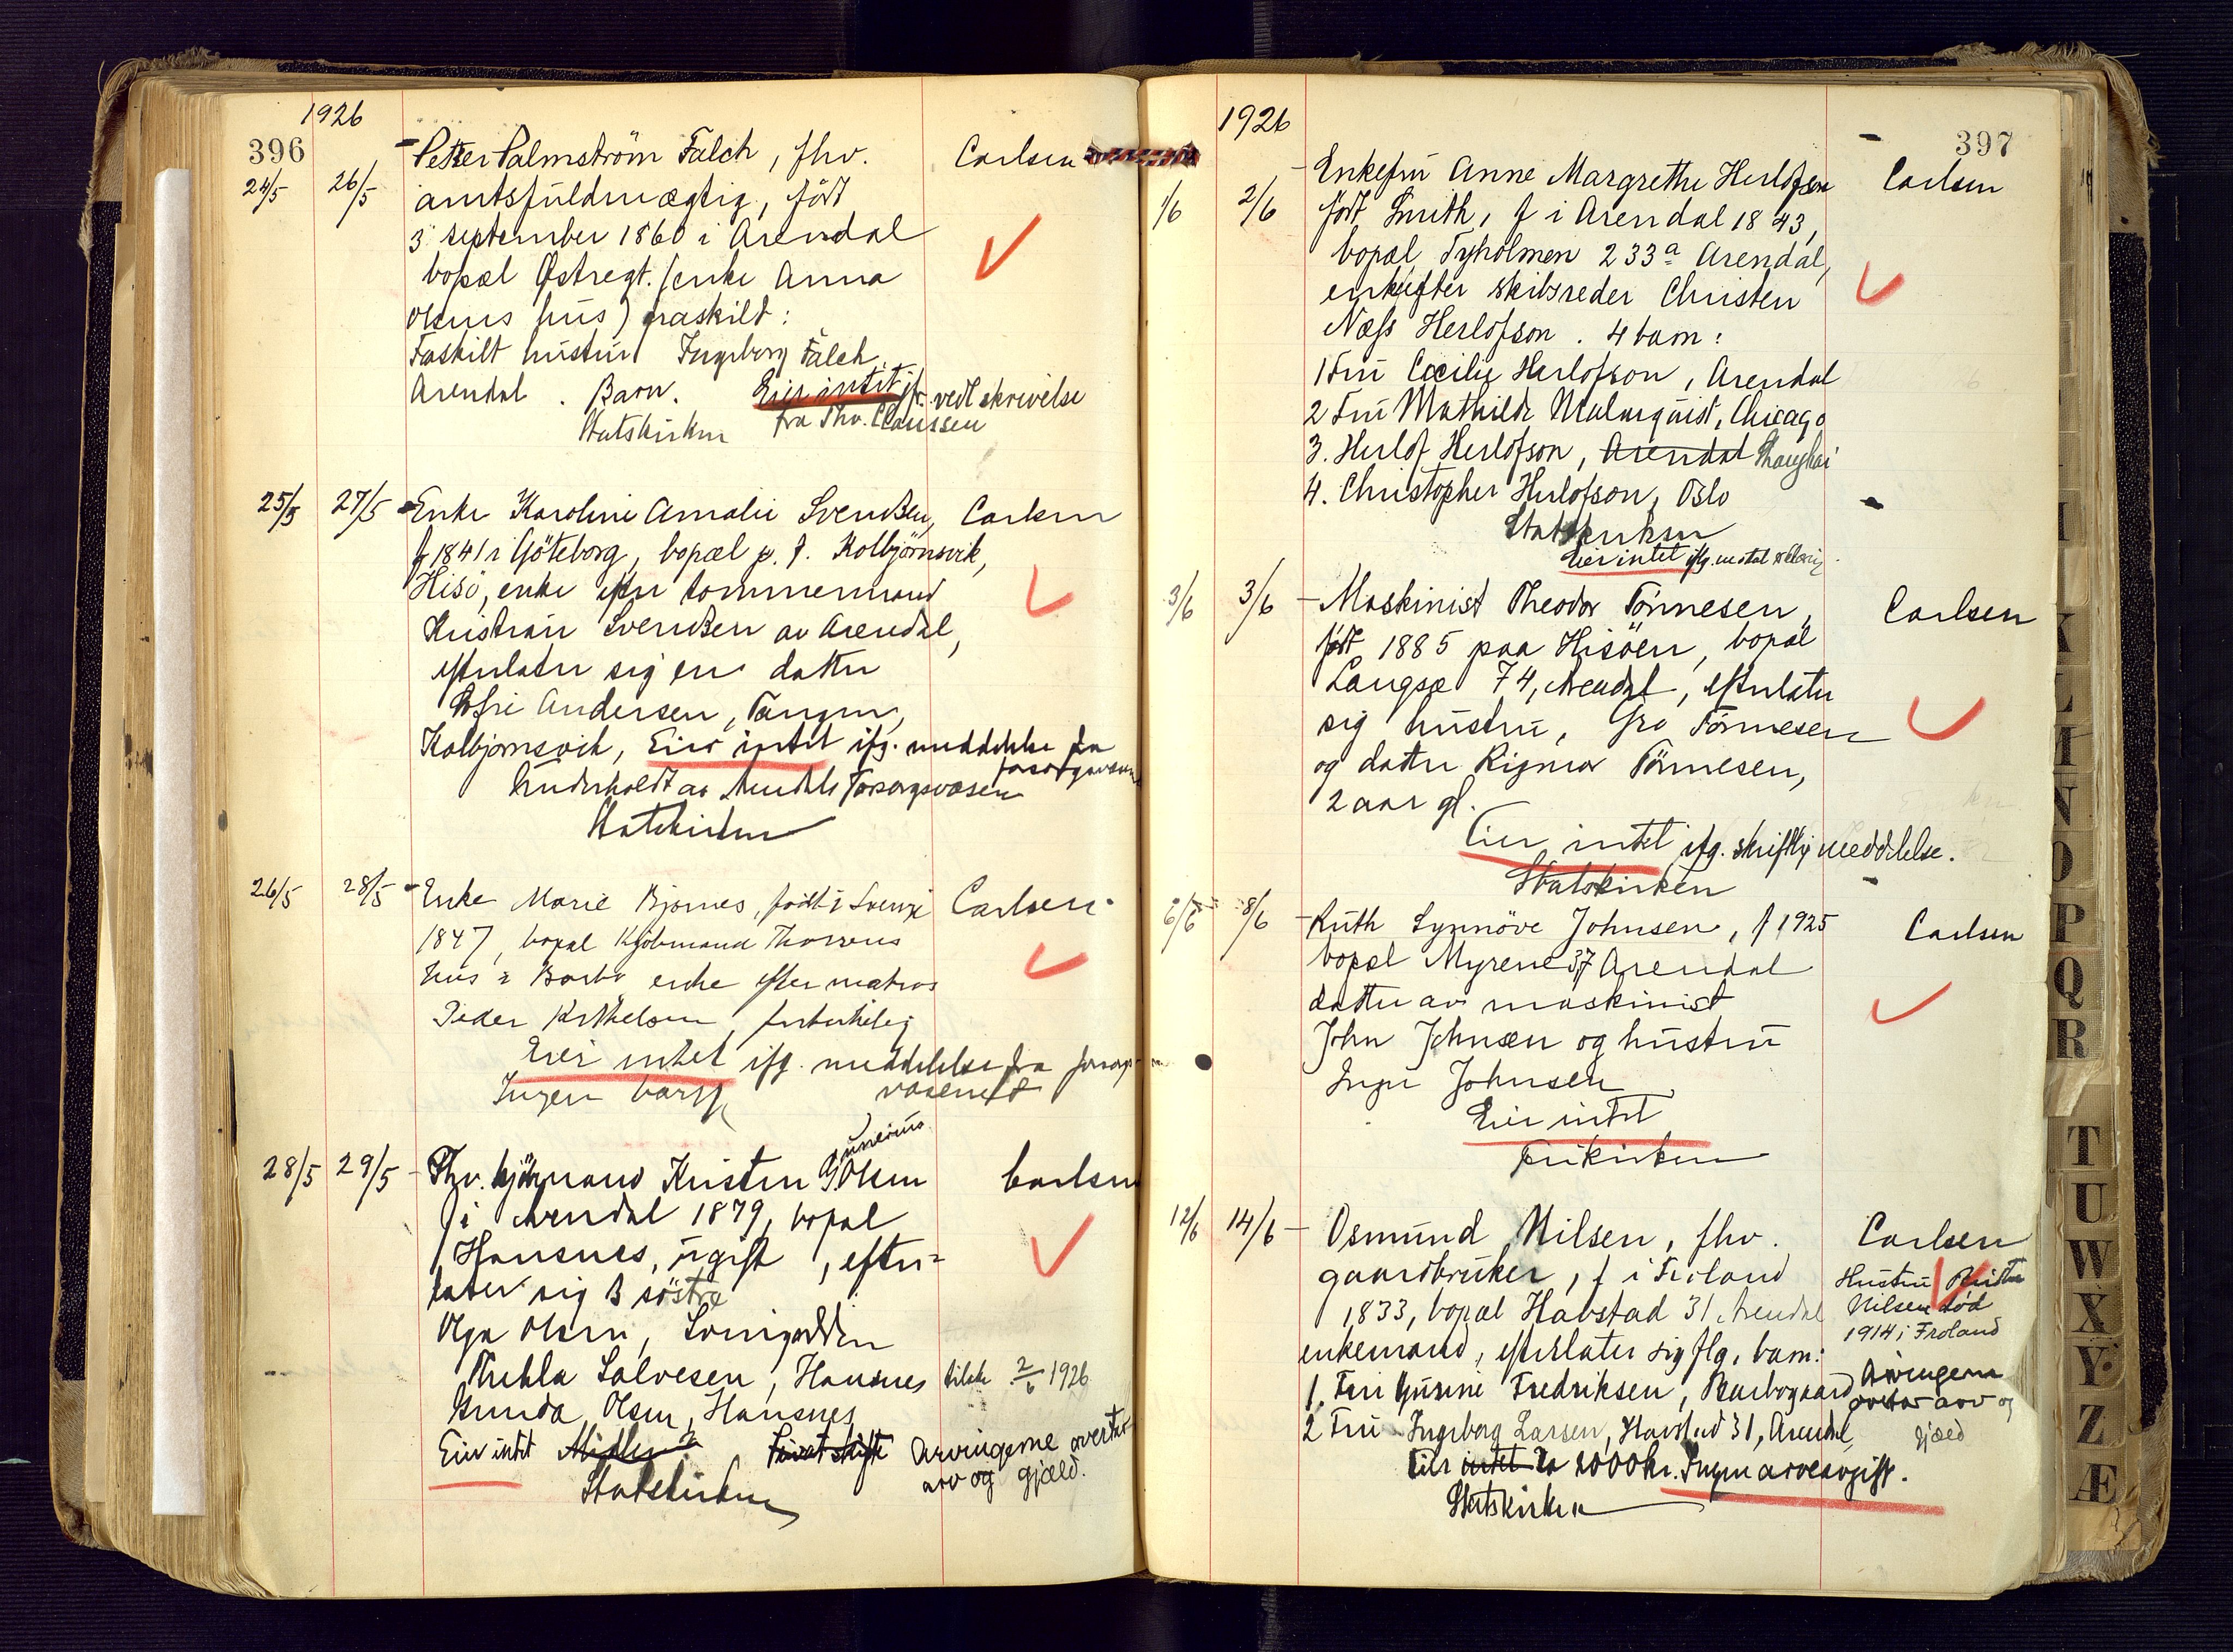 1926
396
24/5 26/5 Petter Palmström Falch, fhv. Carlsen
amtsfuldmægtig, född
3 september 1860 i Arendal
bopæl Østregt. (enke Anna
Olsens hus) fraskilt:
Faskilt hustru Ingeborg Falch
Arendal. Barn. Eier intet jfr. vedl skrivelse
Statskirken fra Fhv. Claussen
25/5 27/5 Enke Karoline Amalie Svendsen, Carlsen
f 1841 i Göteborg, bopæl p. t. Kolbjörnsvik,
Hisö, enke efter tømmermand
Kristian Svendsen av Arendal,
efterlater sig en datter
Sofie Andersen, Tangen,
Kolbjørnsvik, Eier intet ifg. meddelelse fra
forsorgsvæsen
Underholdt av Arendals Forsorgsvæsen
Statskirken
26/5 28/5 Enke Marie Bjørnes, født i Sverige Carlsen
1847, bopæl Kjøbmand Thorsens
hus i Barbo enke efter matros
Peder Kittelsen,
Eier intet ifg. meddelelse fra forsorgs-
Ingen barn væsenet
Gunerius
28/5 29/5 Fhv. kjøpmand Kristen G Olsen Carlsen
f i Arendal 1879, bopæl
Hansnes, ugift, efter=
later sig 3 søstre
Olga Olsen, Songodden
Thekla Salvesen, Hansnes tilste 2/6 1926
Gunda Olsen, Hansnes
Eier intet Midler? Privat skifte Arvingerne overtar
Statskirken arv og gjæld.
1926
397
1/6 2/6 Enkefru Anne Margrethe Herlofson Carlsen
født Smith, f i Arendal 1843,
bopæl Tyholmen 233a Arendal,
enke efter skibsreder Christen
Næss Herlofson. 4 barn:
1 Fru Cecilie Herlofson, Arendal
2 Fru Mathilde Malmquist, Chicago
3. Herlof Herlofson, Arendal Shanghai
4. Christopher Herlofson, Oslo
Statskirken
Eier intet ifg.
3/6 3/6 Maskinist Theodor Tönnesen, Carlsen
født 1885 paa Hisöen, bopæl
Langsæ 74, Arendal, efterlater
sig hustru, Gro Tönnesen
og datter Rigmor Tönnesen,
2 aar gl.
Eier intet ifg. skriftlig meddelelse.
Statskirken
6/6 8/6 Ruth Synnöve Johnsen, f 1925 Carlsen
bopæl Myrene 37 Arendal
datter av maskinist
John Johnsen og hustru
Inga Johnsen
Eier intet
Frikirken
12/6 14/6 Osmund Nilsen, fhv. Carlsen
gaardbruker, f i Froland Hustru Birthe
1833, bopæl Havstad 31 Arendal Nilsen død
enkemand, efterlater sig flg. barn: 1914 i Froland
1. Fru Gurine Fredriksen, Barbogaard Arvingerne
overtar arv og
2 Fru Ingeborg Larsen, Havstad 31, Arendal, gjæld
Eier intet Ca 2000 kr. Ingen arveavgift.
Statskirken
K
L
M
N
O
P
Q
R
T
U
W
X
Y
Z
Æ